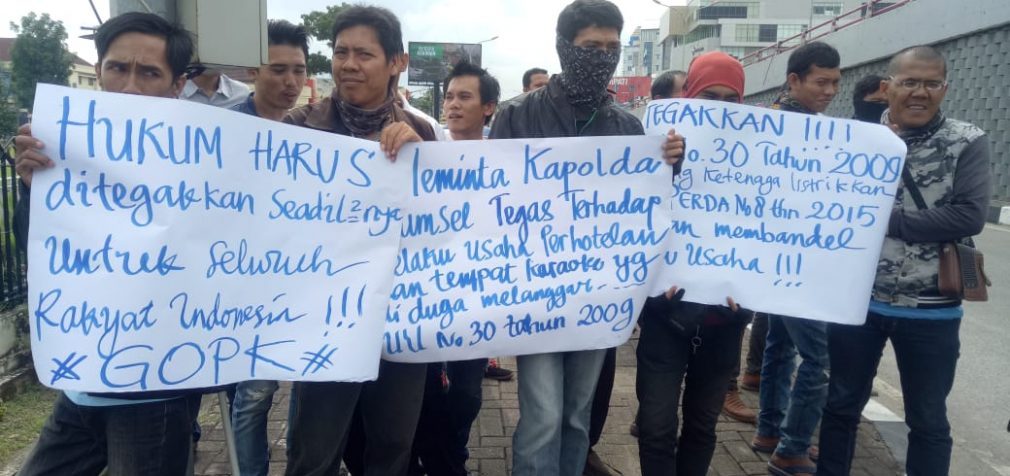 HUKUM HARUS
ditegakkan Seadil²nya
Untuk Seluruh
Rakyat Indonesia !!!
#GOPK#
Meminta Kapolda
umsel Tegas Terhadap
elaku Usaha Perhotelan
an tempat Karaoke yg
di duga melanggar....
UU No 30 tahun 2009
TEGAKKAN !!!!
No. 30 Tahun 2009
g Ketenaga listrikkan
PERDA No 8 thn 2015
an membandel
u Usaha !!!